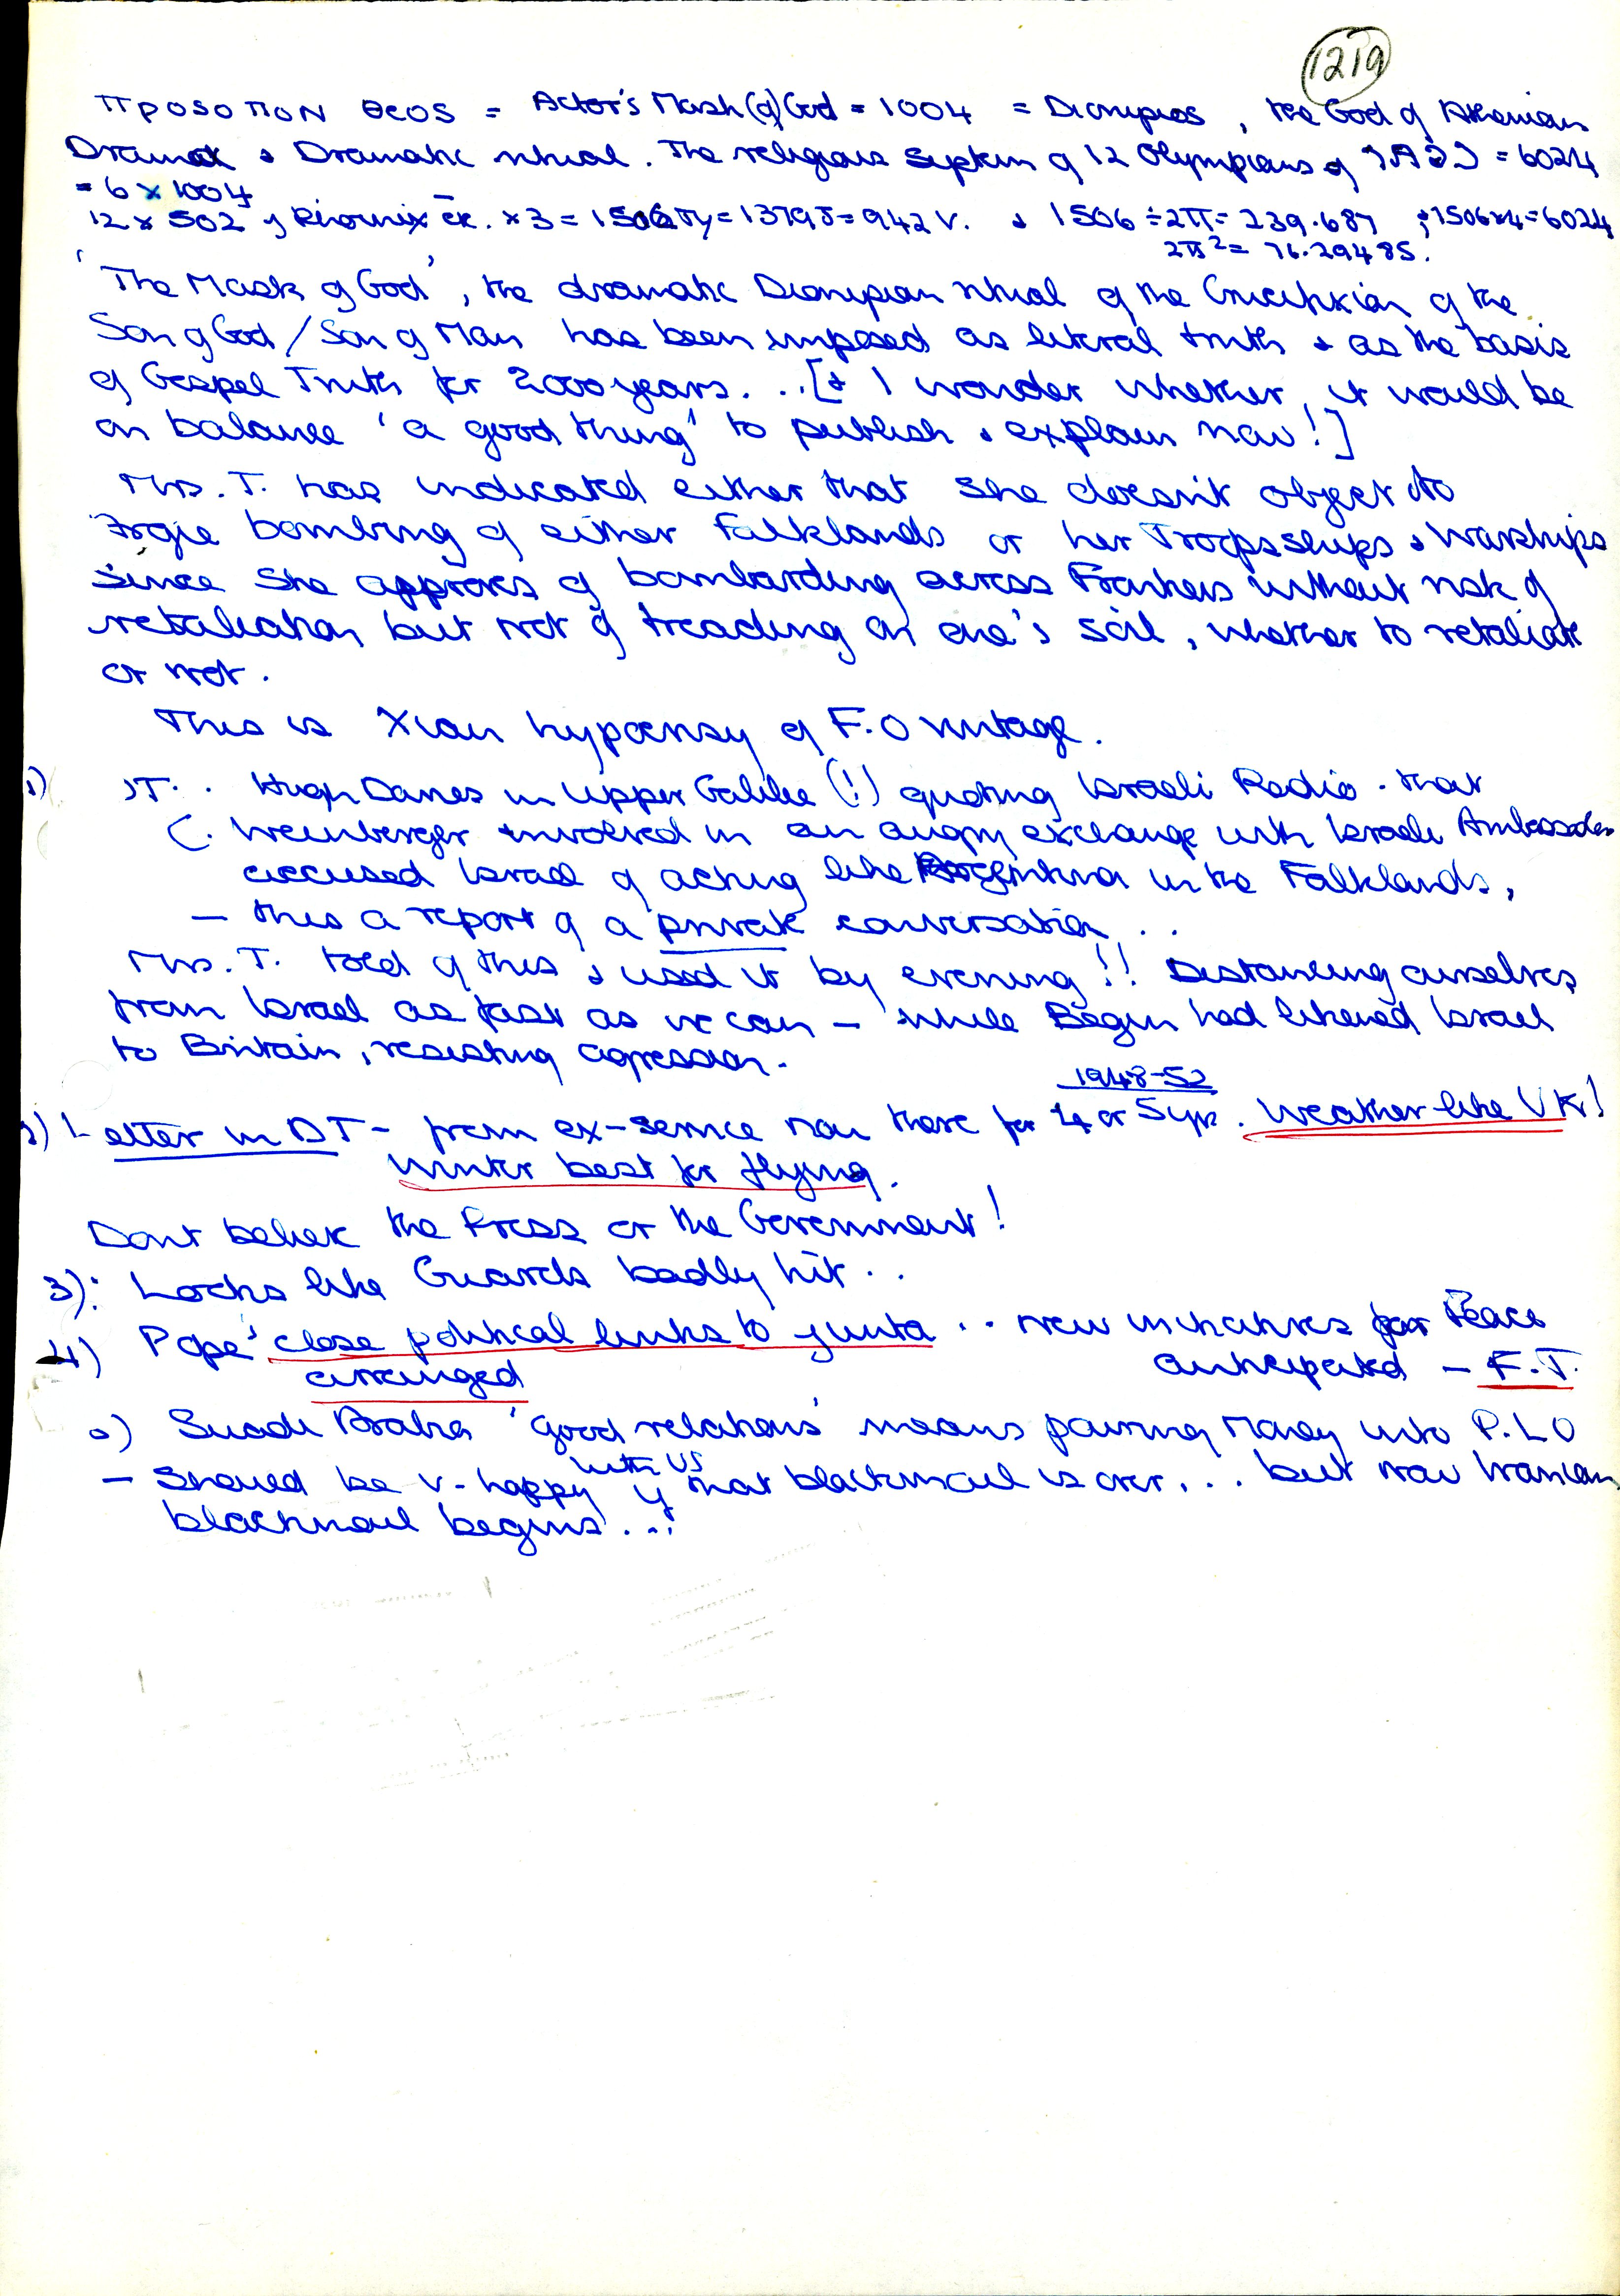 1219
ΠΡΟSΟΠΟΝ ΘΕΟS = Actor's Mask (of) God = 1004 = Dionysos, the God of Athenian
Drama & Dramatic ritual. The religious system of 12 Olympians of = 6024
= 6 x 1004
12 x 502 of Phoenix x 3 = 1506 = 1379 = 942 V. & 1506 ÷ 2π = 239.687 ; 1506x4 = 6024
2π² = 76.29485.
'The Mask of God', the dramatic Dionysian ritual of the Crucifixion of the
Son of God / Son of Man has been imposed as literal truth & as the basis
of Gospel Truth for 2000 years. .. [& I wonder whether, it would be
on balance 'a good thing' to publish & explain now!]
Mrs. T. has indicated either that she doesn't object to
Argie bombing of either Falklands or her Troopsships & Warships
since she approves of bombarding across Frontiers without risk of
retaliation but not of treading on one's soil, whether to retaliate
or not.
This is Xian hypocrisy of F.O vintage.
1) Hugh Davies in Upper Galilee (!) quoting Israeli Radio - that
C. Weinberger involved in an angry exchange with Israeli Ambassador
accused Israel of acting like Argentina in the Falklands,
— this a report of a private conversation ..
Mrs. T. told of this & used it by evening!! Distancing ourselves
from Israel as fast as we can — while Begin had likened Israel
to Britain, resisting agression.
1948-52
2) Letter in DT - from ex-service man there for 4 or 5 yrs. Weather like UK!
Winter best for flying.
Dont believe the Press or the Government!
3): Looks like Guards badly hit ..
4) Pope's close political links to junta .. new initiatives for Peace
arranged anticipated — F.T.
Saudi Arabia 'good relations' means pouring Money into P.L.O
with US
— Should be v-happy if that blackmail is over ... but now Iranian
blackmail begins ...